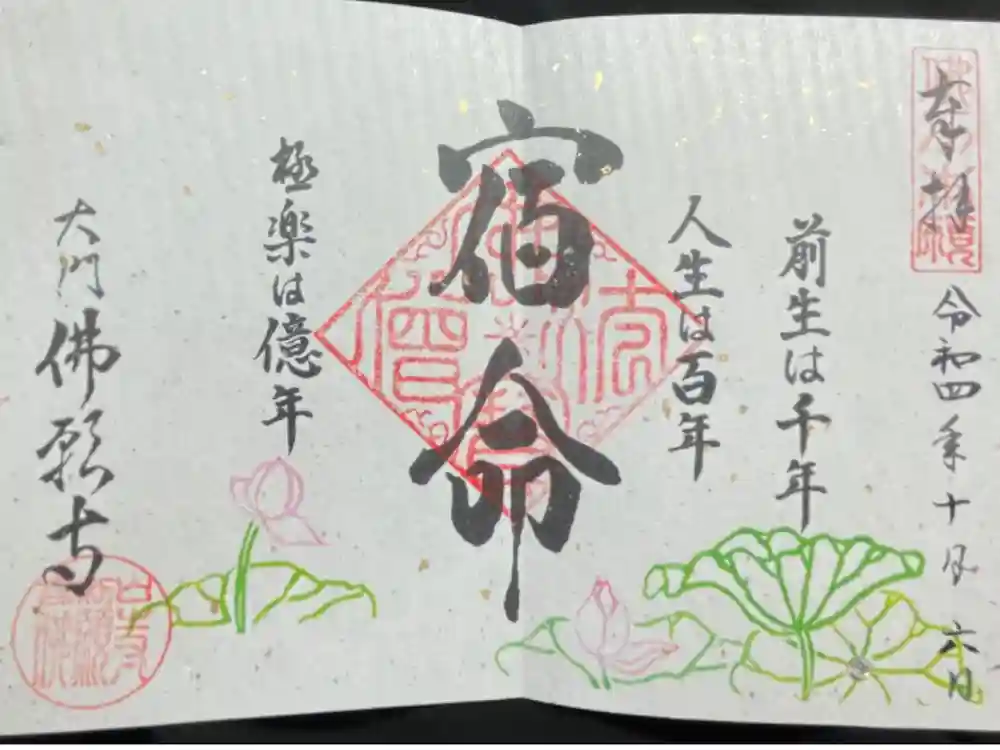 奉拝
令和四年十月六日
前生は千年
人生は百年
宿命
極楽は億年
大門佛願寺